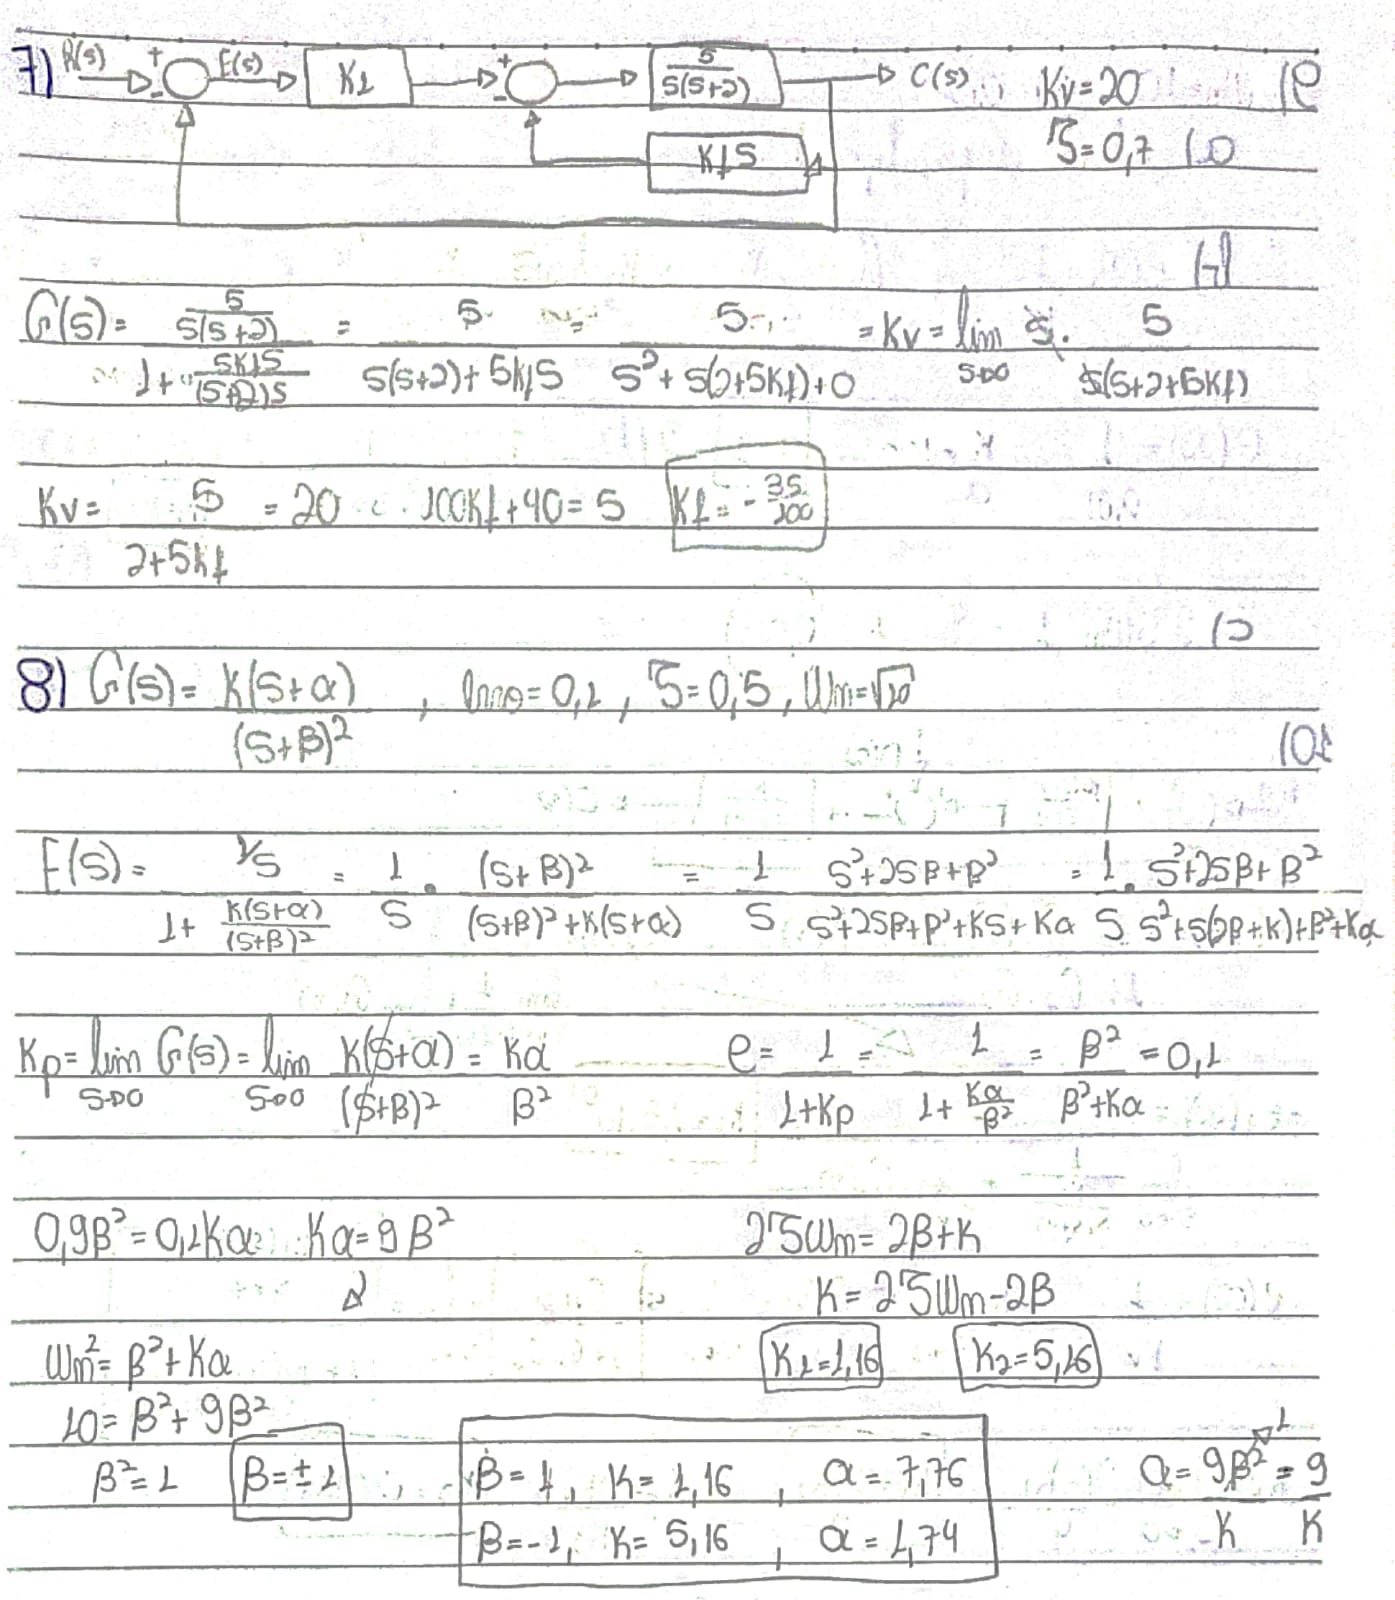 7) R(s) + - E(s) K1 + - 5/(s(s+2)) C(s) Kv=20
Kfs ξ=0,7
G(s) = (5/(s(s+2)))/(1+5Kfs/((s+2)s)) = 5/(s(s+2)+5Kfs) = 5/(s²+s(2+5Kf)+0) = Kv = lim s→0 s. 5/(s(s+2+5Kf))
Kv = 5/(2+5Kf) = 20 100Kf+40=5 Kf = -35/100
8) G(s) = K(s+α)/(s+β)² , erro=0,1 , ξ=0,5 , Wn=√10
E(s) = (1/s)/(1+K(s+α)/(s+β)²) = 1/s . (s+β)²/((s+β)²+K(s+α)) = 1/s (s²+2sβ+β²)/(s²+2sβ+β²+Ks+Kα) = 1/s . (s²+2sβ+β²)/(s²+s(2β+K)+β²+Kα)
Kp = lim s→0 G(s) = lim s→0 K(s+α)/(s+β)² = Kα/β² e = 1/(1+Kp) = 1/(1+Kα/β²) = β²/(β²+Kα) = 0,1
0,9β²=0,1Kα Kα=9β² 2ξWn=2β+K
K=2ξWn-2β
Wn²=β²+Kα K1=1,16 K2=5,16
10=β²+9β²
β²=1 β=±1 β=1, K=1,16 , α=7,76 α=9β²/K = 9/K 1
β=-1, K=5,16 , α=1,74